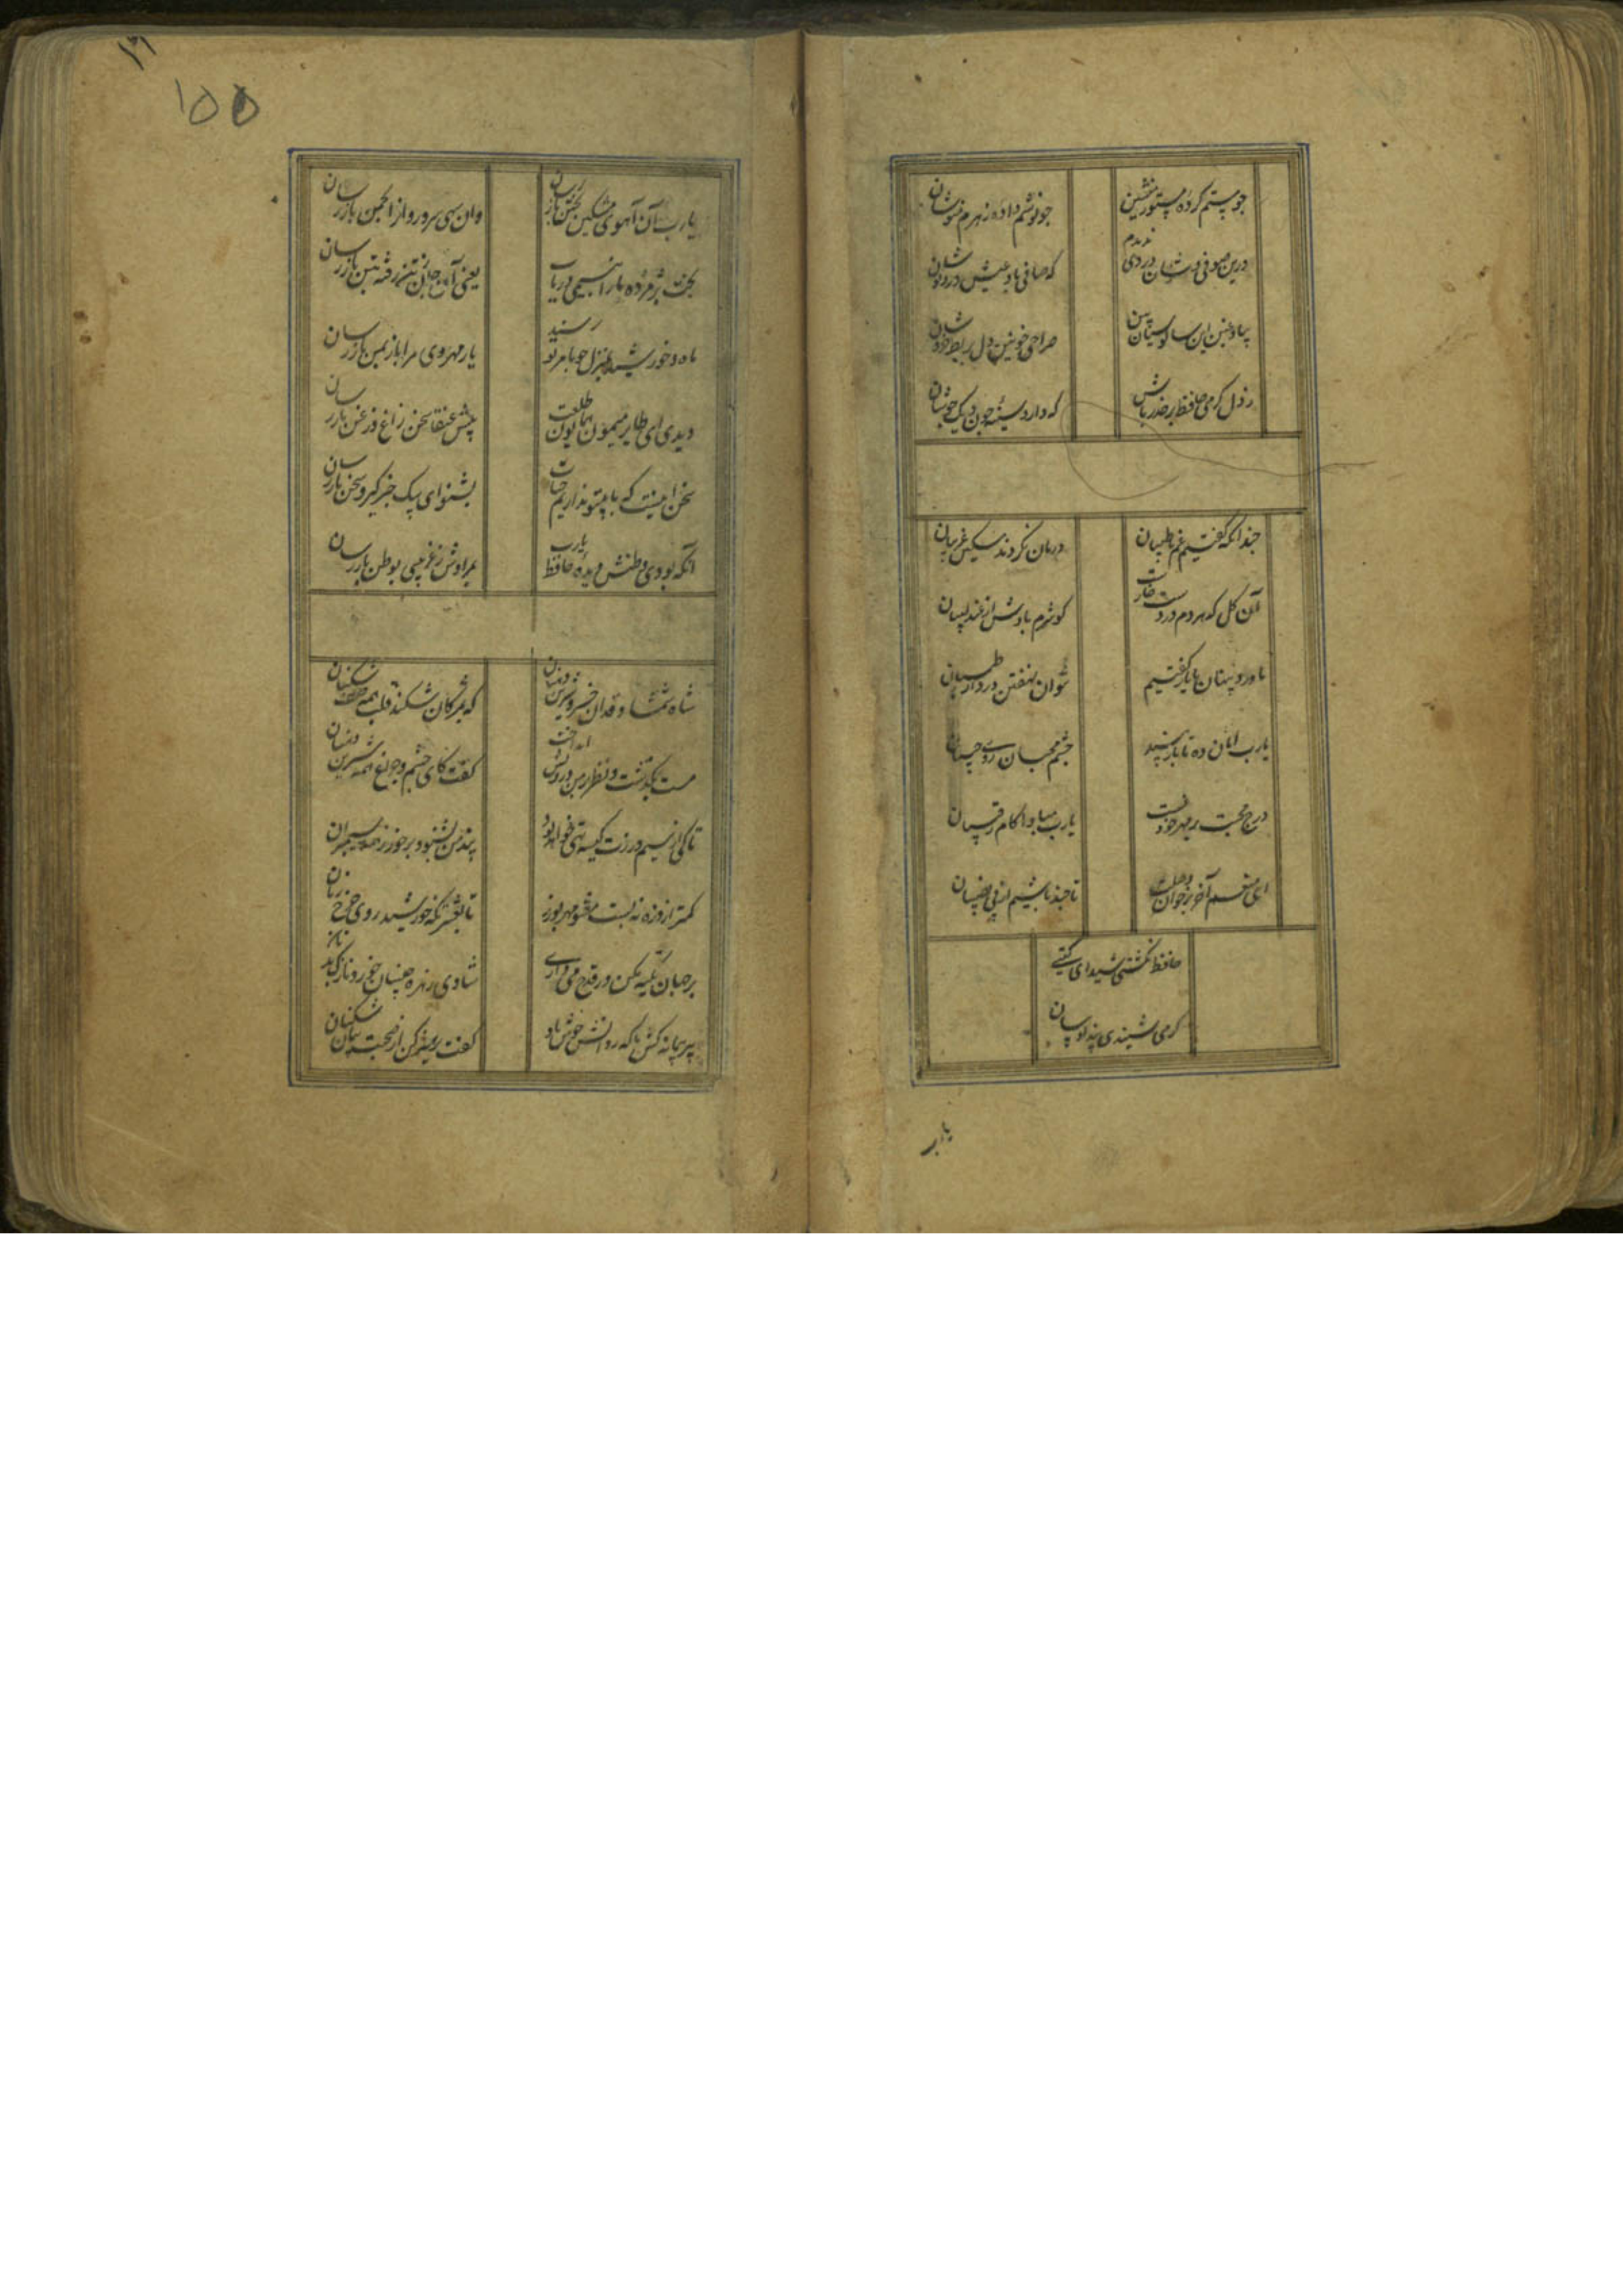 چو مستم کرده مستور منشین
چو نوشم داده زهرم منوشان
درین صوفی وشان دردی ندیدم
که صافی باد عیش دردنوشان
بیا و ببین این سالوسیان بین
صراحی خونین دل و بربط خروشان
ز دل گرمی حافظ بر حذر باش
که دارد سینهٔ چون دیک جوشان
چندانکه گفتیم غم با طبیبان
درمان نکردند مسکین غریبان
آن کل که هر دم در دست خارست
کو شرم بادش از عندلیبان
ما درد پنهان با یار گفتیم
نتوان نهفتن درد از طبیبان
یارب امان ده تا باز بیند
چشم محبان روی حبیبان
درج محبت بر مهر خود نیست
یارب مبادا کام رقیبان
ای منعم آخر بر خوان وصلت
تا چند باشیم از بی نصیبان
حافظ نکشتی شیدای کیتی
گر می شنیدی پند ادیبان
یارب
۱۵۵
یارب آن آهوی مشکین بختن باز رسان
وان سهی سرو روان از انجمن باز رسان
بخت پژمرده ما را بنسیمی دریاب
یعنی آن جان ز تن رفته بتن باز رسان
ماه و خورشید بمنزل چو بامر تو رسند
یار مهروی مرا باز بمن باز رسان
دیدی ای طایر میمون همایون طلعت
پیش عنقا سخن زاغ و زغن باز رسان
سخن اینست که ما بیتو نداریم حیات
بشنو ای پیک خبر گیر و سخن باز رسان
آنکه بودی وطنش دیدهٔ حافظ یارب
بمرادش ز غریبی بوطن باز رسان
شاه شمشاد قدان خسرو شیرین دهنان
که بمژگان شکند قلب همه صف شکنان
مست بگذشت و نظر بر من درویش انداخت
گفت کای چشم و چراغ همه شیرین دهنان
تا کی از سیم و زرت کیسه تهی خواهد بود
پند من بشنو و بر خور ز همه سیمبران
کمتر از ذره نهٔ پست مشو مهر بورز
تا بخلوتگه خورشید روی چرخ زنان
بر جهان تکیه مکن ور قدح می داری
شادی زهره جبینان خور و نازک بدنان
پیر پیمانه کش ما که روانش خوش باد
گفت پرهیز کن از صحبت پیمان شکنان